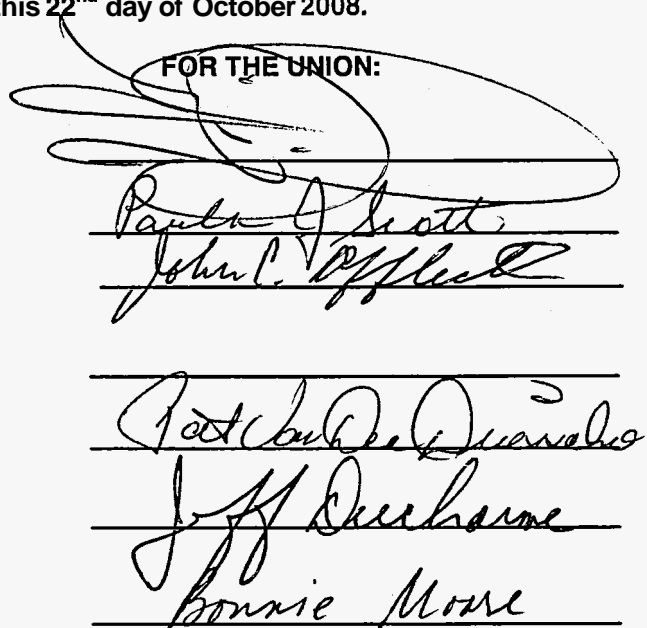 this 22nd day of October 2008.
FOR THE UNION:
Paula J Scott
John C. Affleck
Pat Van Den
Jeff Ducharme
Bonnie Moore